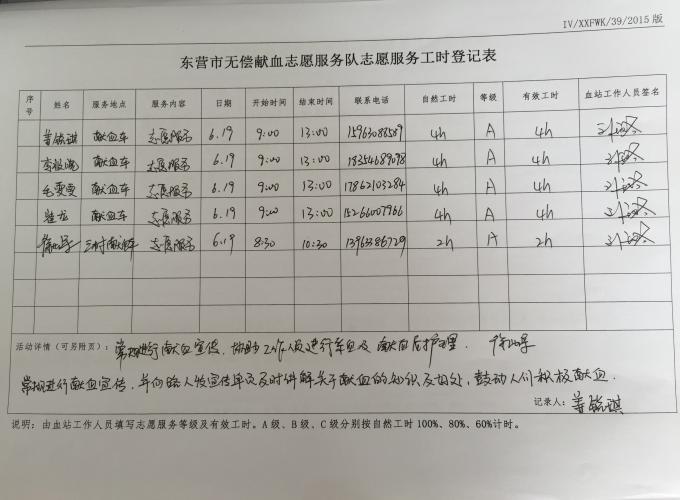 IV/XXFWK/39/2015 版
东营市无偿献血志愿服务队志愿服务工时登记表
序号 姓名 服务地点 服务内容 日期 开始时间 结束时间 联系电话 自然工时 等级 有效工时 血站工作人员签名
姜铭琪 献血车 志愿服务 6.19 9:00 13:00 15963088589 4h A 4h
献血车 志愿服务 6.19 9:00 13:00 18354689098 4h A 4h
毛雯雯 献血车 志愿服务 6.19 9:00 13:00 17862103284 4h A 4h
献血车 志愿服务 6.19 9:00 13:00 15266007966 4h A 4h
献血车 志愿服务 6.19 8:30 10:30 13963386729 2h A 2h
活动详情（可另附页）： 常规进行献血宣传，协助工作人员进行采血及献血后护理.
常规进行献血宣传，并向路人发宣传单页及时讲解关于献血的知识及好处，鼓动人们积极献血.
记录人： 姜铭琪
说明：由血站工作人员填写志愿服务等级及有效工时。A 级、B 级、C 级分别按自然工时 100%、80%、60%计时。